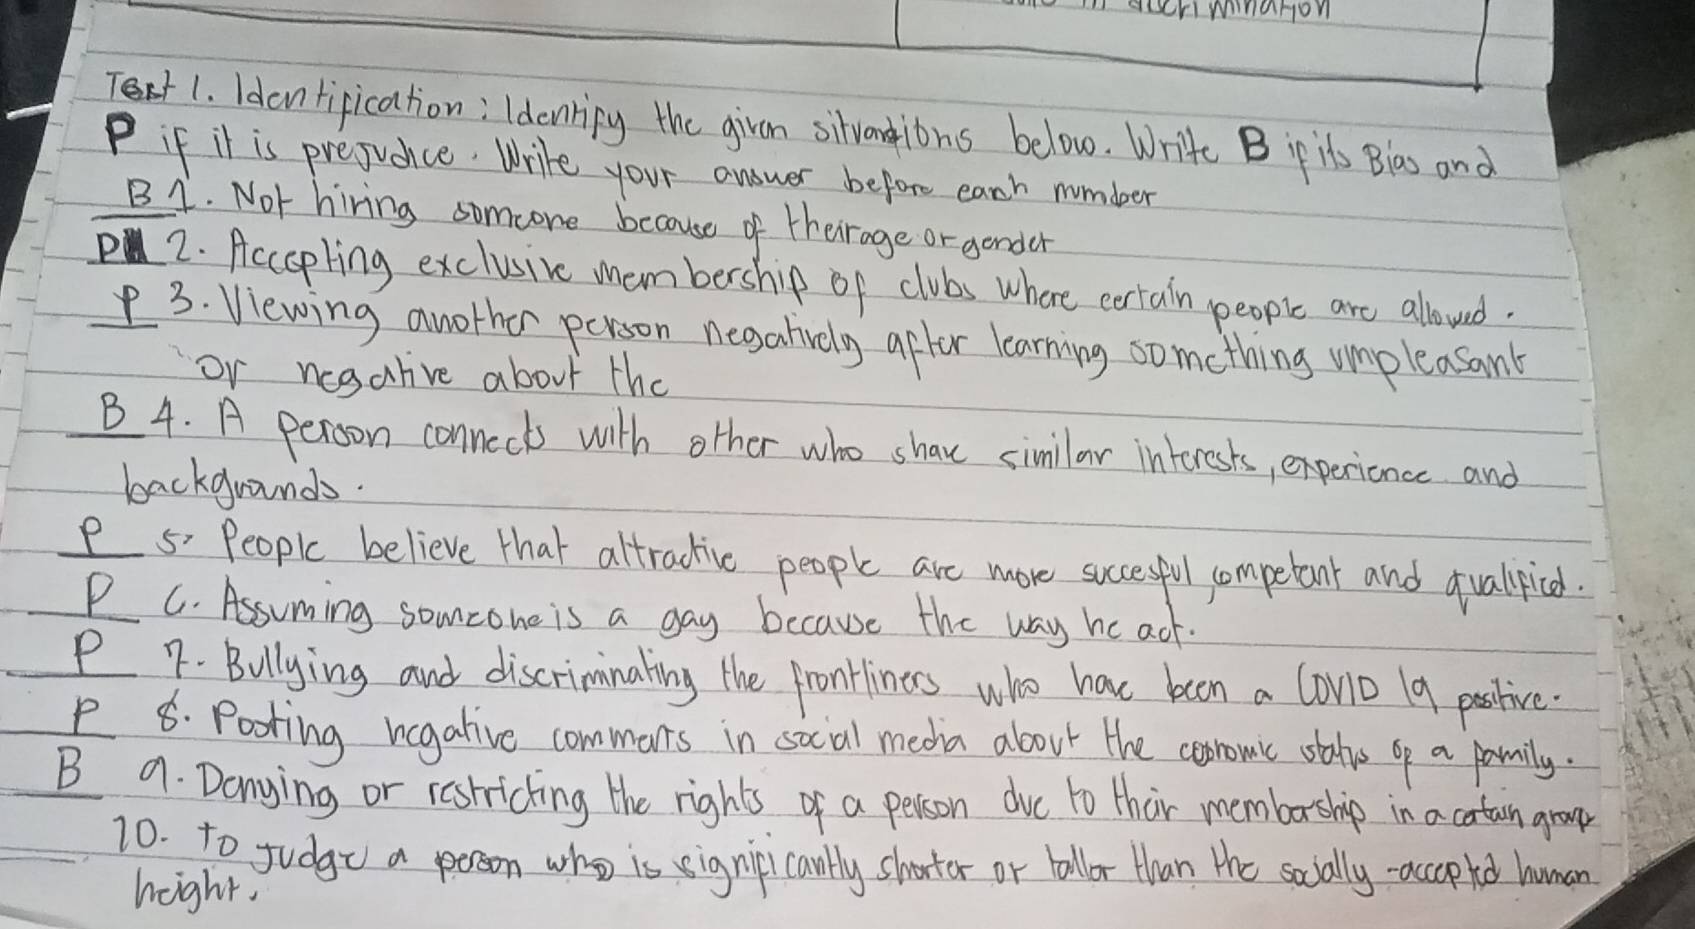 discrimination
Test 1. Identification: Identify the given situandtions below. Write B if its Bias and
P if it is prejudice. Write your answer before each number
B 1. Not hiring someone because of their age or gender
P 2. Accepting exclusive membership of clubs where certain people are allowed.
P 3. Viewing another person negatively after learning something umpleasant
or negative about the
B 4. A person connects with other who share similar interests, experience and
backgrounds.
P 5. People believe that attractive people are more succesful, competent and qualified.
P 6. Assuming someone is a gay because the way he act.
P 7. Bullying and discriminating the frontliners who have been a COVID 19 positive.
P 8. Posting negative comments in social media about the economic status of a family.
B 9. Denying or restricting the rights of a person due to their membership in a certain group
10. to judge a person who is significantly shorter or taller than the socially-accepted human
height.